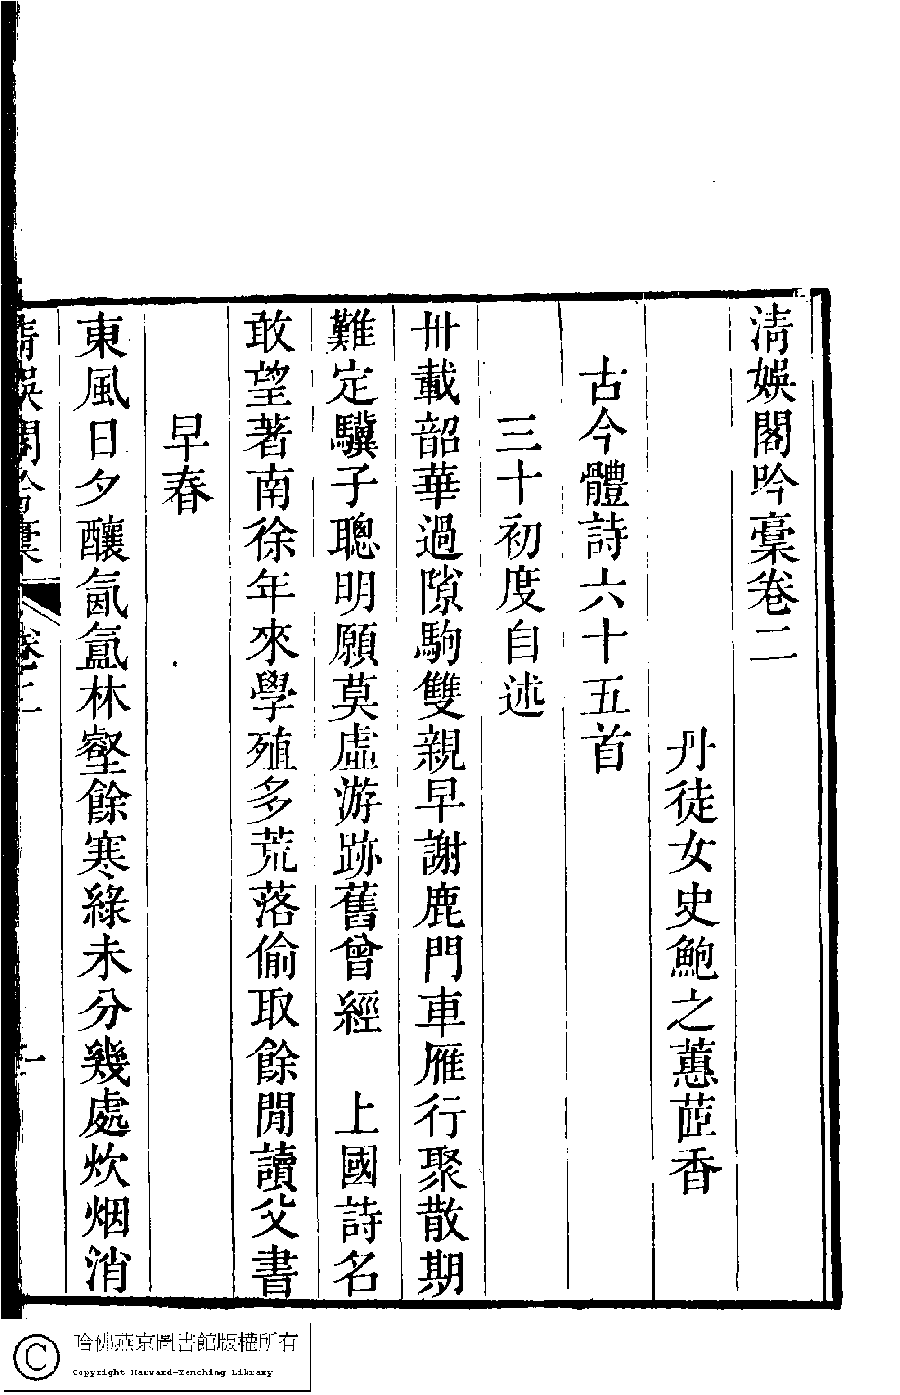 清娛閣吟稾卷二
丹徒女史鮑之蕙茝香
古今體詩六十五首
三十初度自述
卅載韶華過隙駒雙親早謝鹿門車雁行聚散期
難定驥子聰明願莫虛游跡舊曾經　上國詩名
敢望著南徐年來學殖多荒落偷取餘閒讀父書
早春
東風日夕釀氤氳林壑餘寒綠未分幾處炊烟消
清娛閣吟稾 卷二 一
哈佛燕京圖書館版權所有
Copyright Harvard-Yenching Library